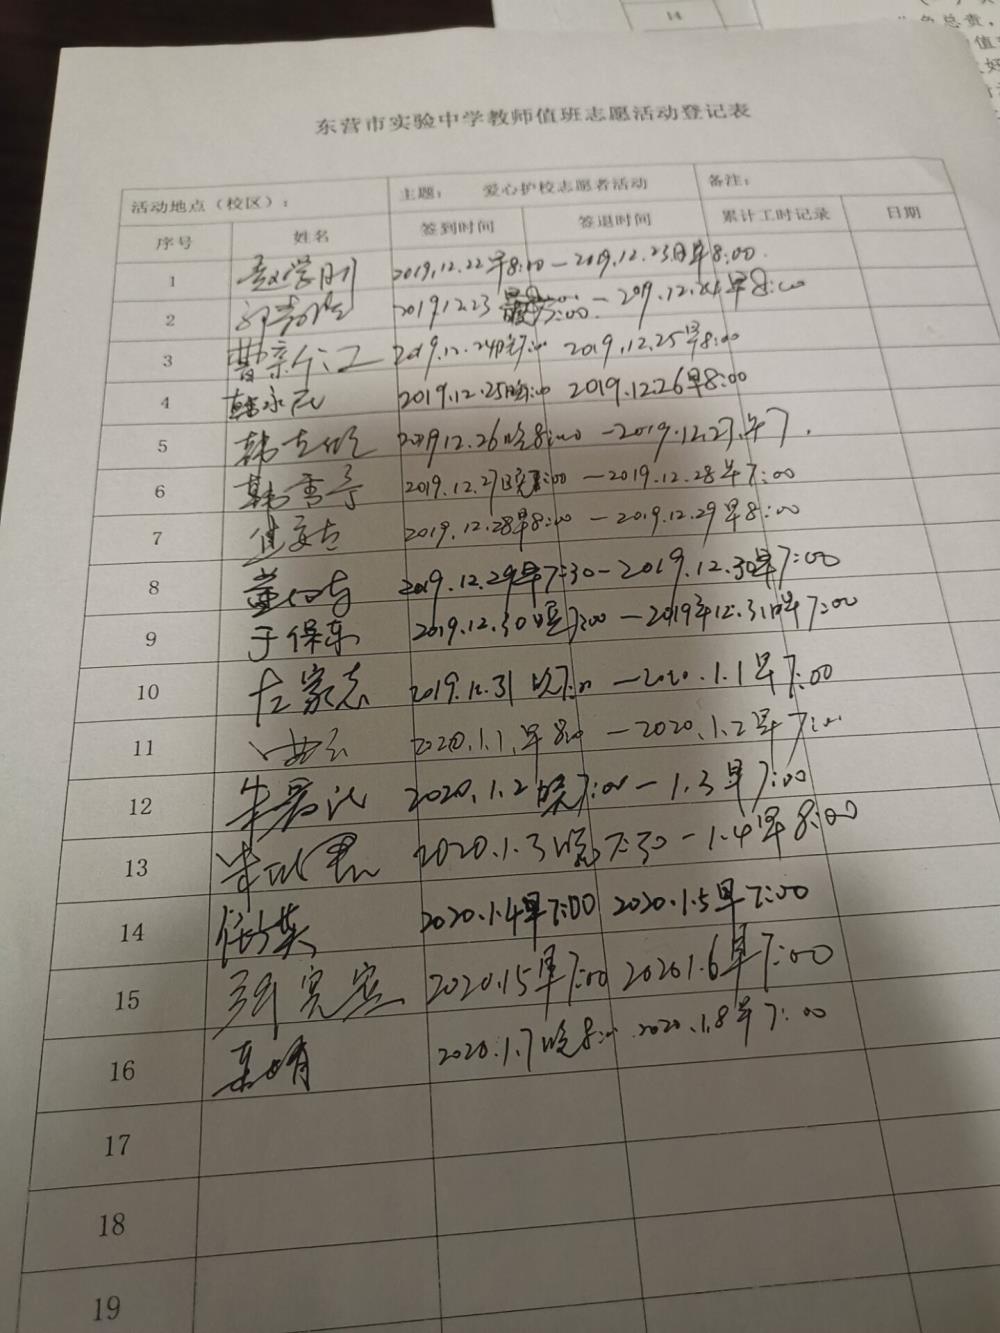 14
东营市实验中学教师值班志愿活动登记表
活动地点（校区）： 主题： 爱心护校志愿者活动 备注：
序号 姓名 签到时间 签退时间 累计工时记录 日期
1 赵学刚 2019.12.22早8:00—2019.12.23日早8:00.
2 2019.12.23 7:00.—2019.12.24早8:00
3 2019.12.24晚7:00 2019.12.25早8:00
4 韩永民 2019.12.25晚 2019.12.26早8:00
5 韩 2019.12.26晚8:00—2019.12.27.早7.
6 韩雪亭 2019.12.27晚 :00—2019.12.28早7:00
7 2019.12.28早8:00—2019.12.29早8:00
8 董 2019.12.29早7:30—2019.12.30早7:00
9 于保东 2019.12.30晚7:00—2019年12.31日早7:00
10 左家志 2019.12.31晚7:00—2020.1.1早7:00
11 2020.1.1.早8:00—2020.1.2早7:00
12 牛 2020.1.2晚7:00—1.3早7:00
13 2020.1.3晚7:30—1.4早8:00
14 任 英 2020.1.4早7:00 2020.1.5早7:00
15 2020.1.5早7:00 2020.1.6早7:00
16 2020.1.7晚8:00 2020.1.8早7:00
17
18
19